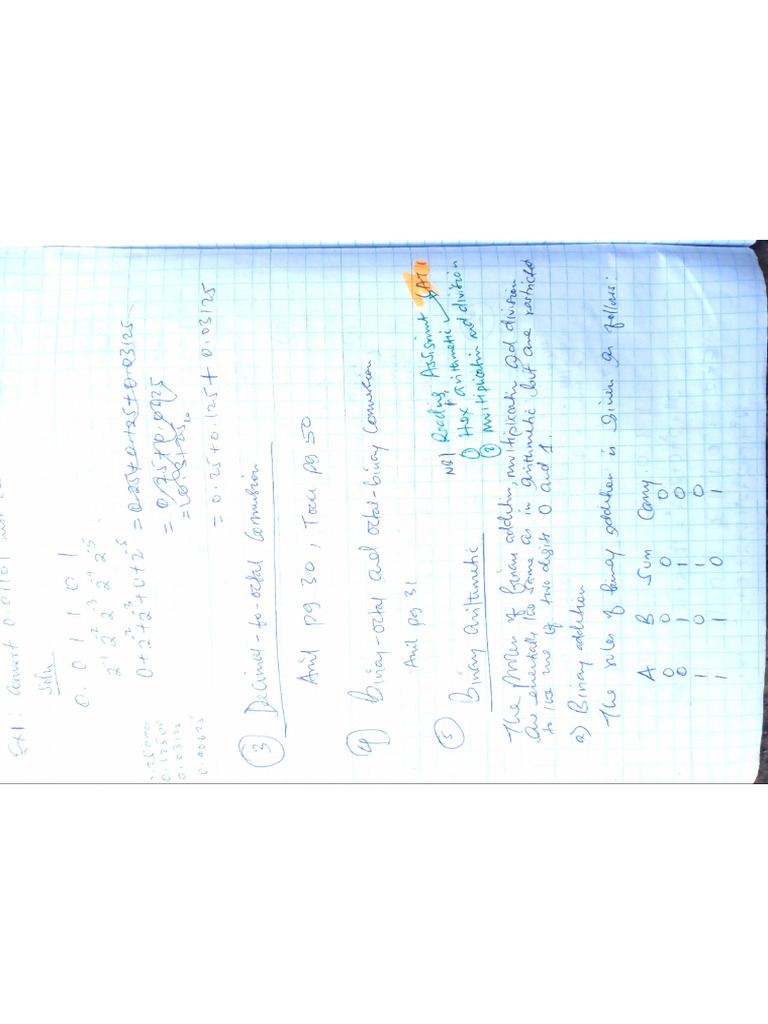 Ex1: Convert 0.01101
Soln
0. 0 1 1 0 1
2^-1 2^-2 2^-3 2^-4 2^-5
0+2^-2+2^-3+0+2^-5 = 0.25+0.125+0.03125
= 0.25+0.125+0.03125
0.03125
③ Decimal-to-octal Conversion
Anil pg 30, Tocci pg 50
④ Binary-octal and octal-binary Conversion
Anil pg 31
NB/ Reading Assignment CAT 1
① Hex arithmetic
② multiplication and division
⑤ Binary arithmetic
The process of binary addition, multiplication and division
are essentially the same as in arithmetic but are restricted
to the use of two digits 0 and 1.
a) Binary addition
The rules of binary addition is given as follows:
A B Sum Carry
0 0 0 0
0 1 1 0
1 0 1 0
1 1 0 1